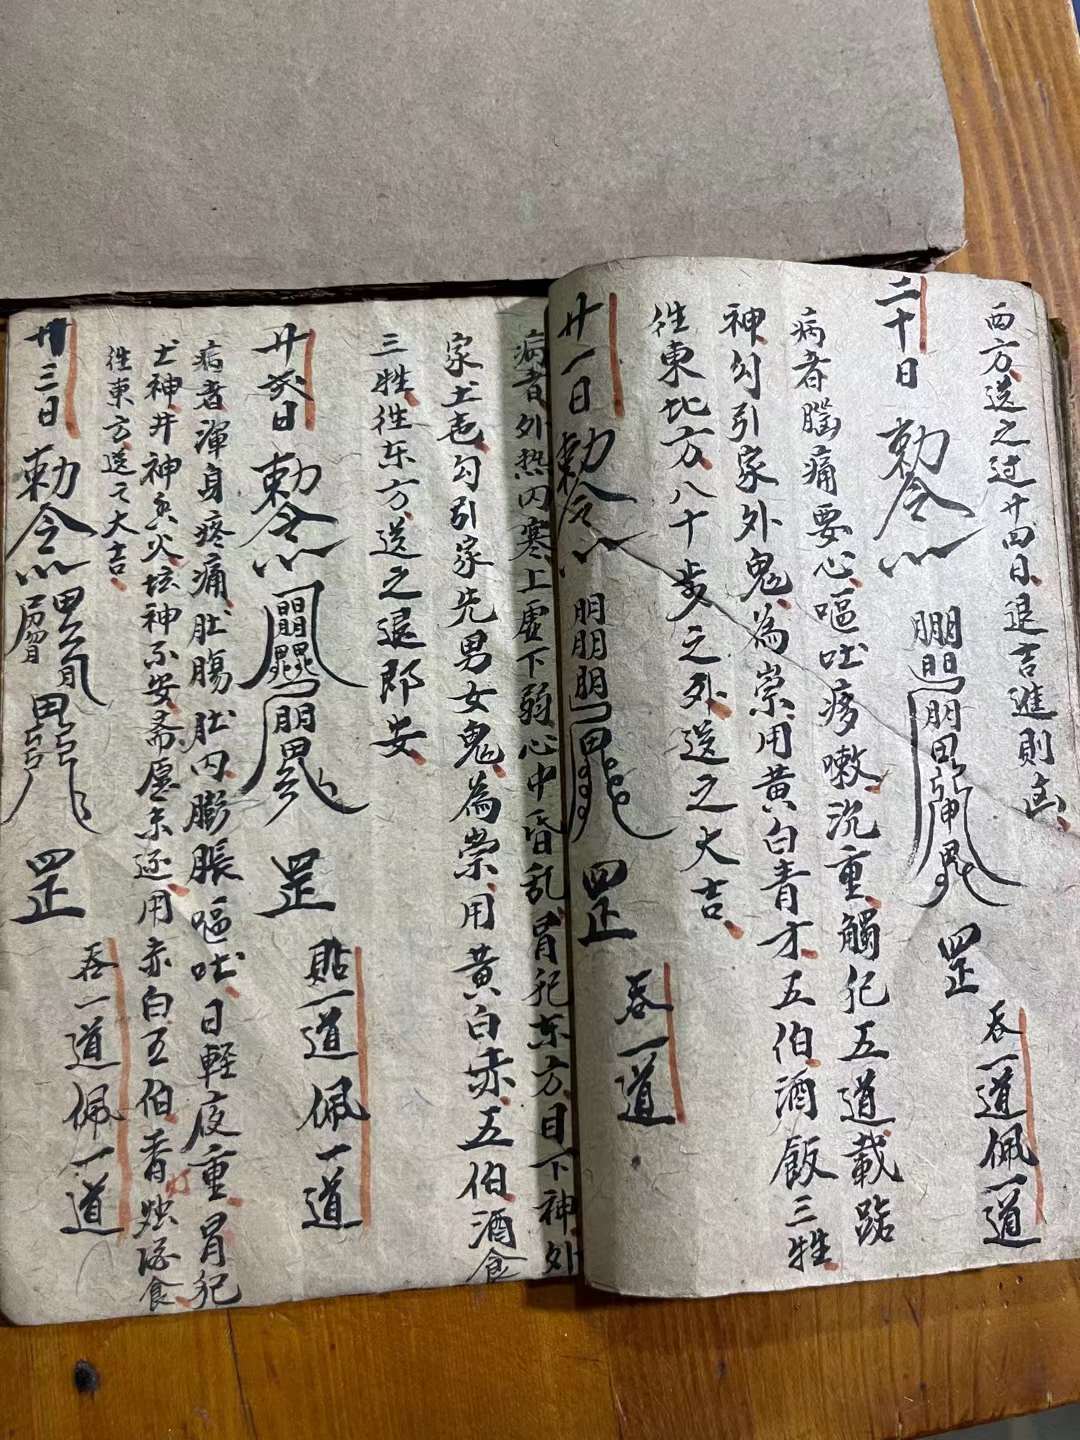 西方送之过廿四日退吉進則凶
二十日 勅令 罡 吞一道佩一道
病者腦痛要心嘔吐痰嗽沉重觸犯五道載路
神勾引家外鬼為祟用黄白青才五伯酒飯三牲
往東北方八十步之外送之大吉
廿一日 勅令 罡 吞一道
病者外热内寒上虚下弱心中昏乱冐犯东方目下神外
家土老勾引家先男女鬼為祟用黄白赤五伯酒食
三牲往东方送之退即安
廿贰日 勅令 罡 貼一道佩一道
病者渾身疼痛肚腸肚内膨脹嘔吐日輕夜重冐犯
土神井神香火坛神不安斋愿未还用赤白五伯香烛酒食
往東方送之大吉
廿三日 勅令 罡 吞一道佩一道